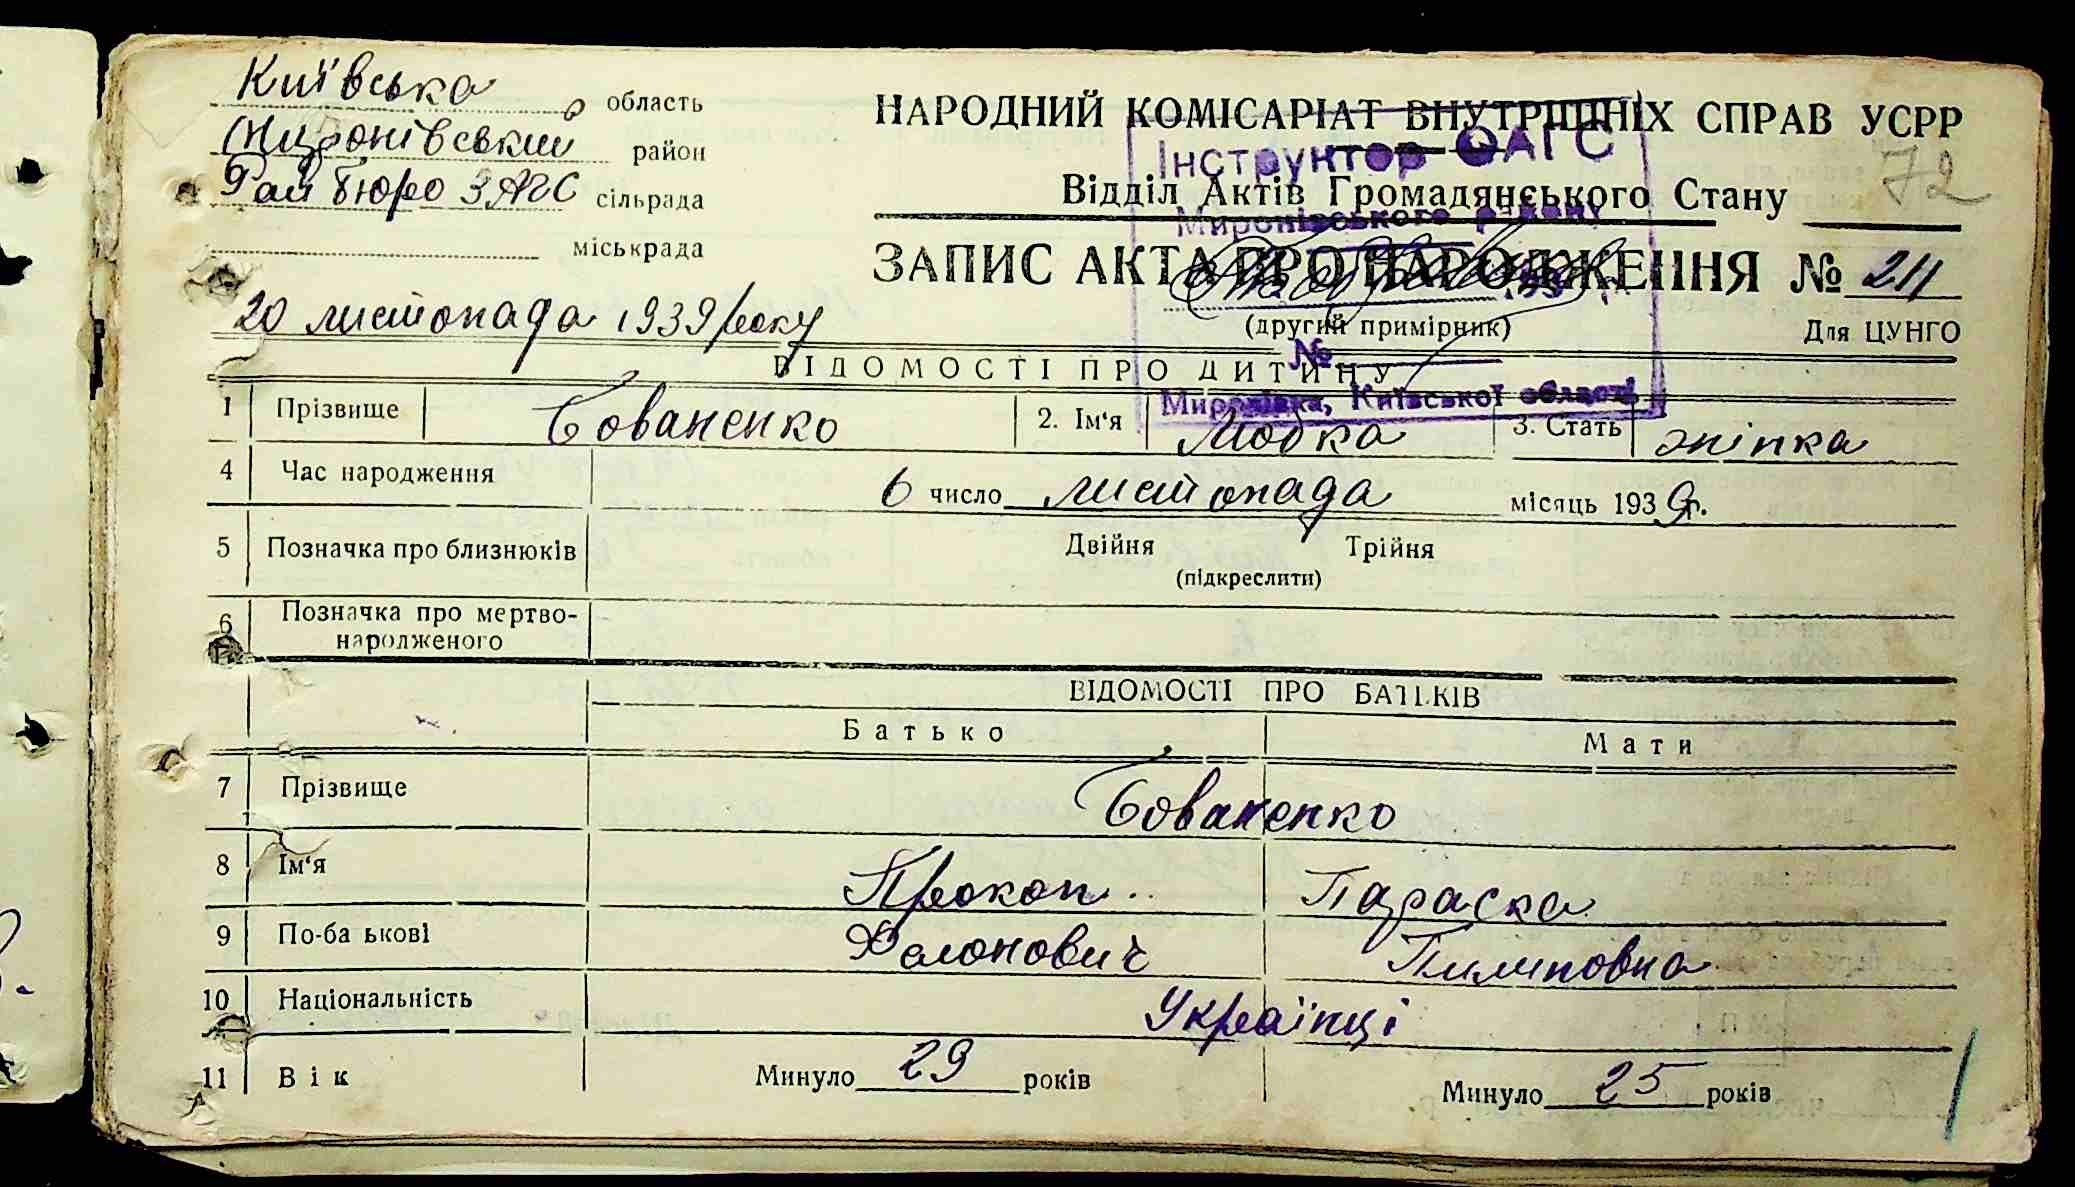 Київська область
Миронівський район
Рай бюро ЗАГС сільрада
міськрада
НАРОДНИЙ КОМІСАРІАТ ВНУТРІШНІХ СПРАВ УСРР
72
Відділ Актів Громадянського Стану
ЗАПИС АКТА ПРО НАРОДЖЕННЯ № 211
(другий примірник)
Для ЦУНГО
Інструктор ОАГС
Миронівського району
№
Миронівка, Київської області
20 листопада 1939 року
ВІДОМОСТІ ПРО ДИТИНУ
1 Прізвище Бованенко 2. Ім'я Любка 3. Стать жінка
4 Час народження 6 число листопада місяць 1939р.
5 Позначка про близнюків Двійня Трійня
(підкреслити)
6 Позначка про мертво-
народженого
ВІДОМОСТІ ПРО БАТЬКІВ
Батько Мати
7 Прізвище Бованенко
8 Ім'я Прокоп Параска
9 По-ба ькові Пилиповна
10 Національність Українці
11 Вік Минуло 29 років Минуло 25 років